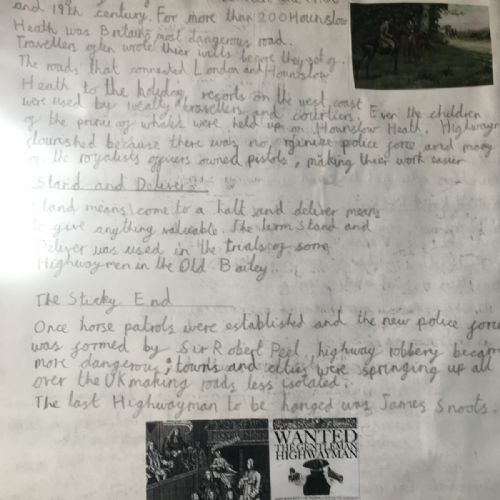 and 19th century. For more than 200 Hounslow
Heath was Britains most dangerous road.
Travellers often wrote thier wills before they set of.
The roads that connected London and Hounslow
Heath to the holiday resorts on the west coast
were used by wealthy travellers and courtiers. Even the children
of the prince of whales were held up on Hounslow Heath. Highwaymen
flourished because there was no police force and many
of the royalists officers owned pistols, making their work easier
Stand and Deliver
Stand means come to a halt and deliver means
to give anything valuable. The term Stand and
Deliver was used in the trials of some
Highwaymen in the Old Bailey.
The Sticky End
Once horse patrols were established and the new police force
was formed by Sir Robert Peel, highway robbery became
more dangerous; towns and cities were springing up all
over the UK making roads less isolated.
The last Highwayman to be hanged was James Snoots.
WANTED
THE GENTLEMAN
HIGHWAYMAN